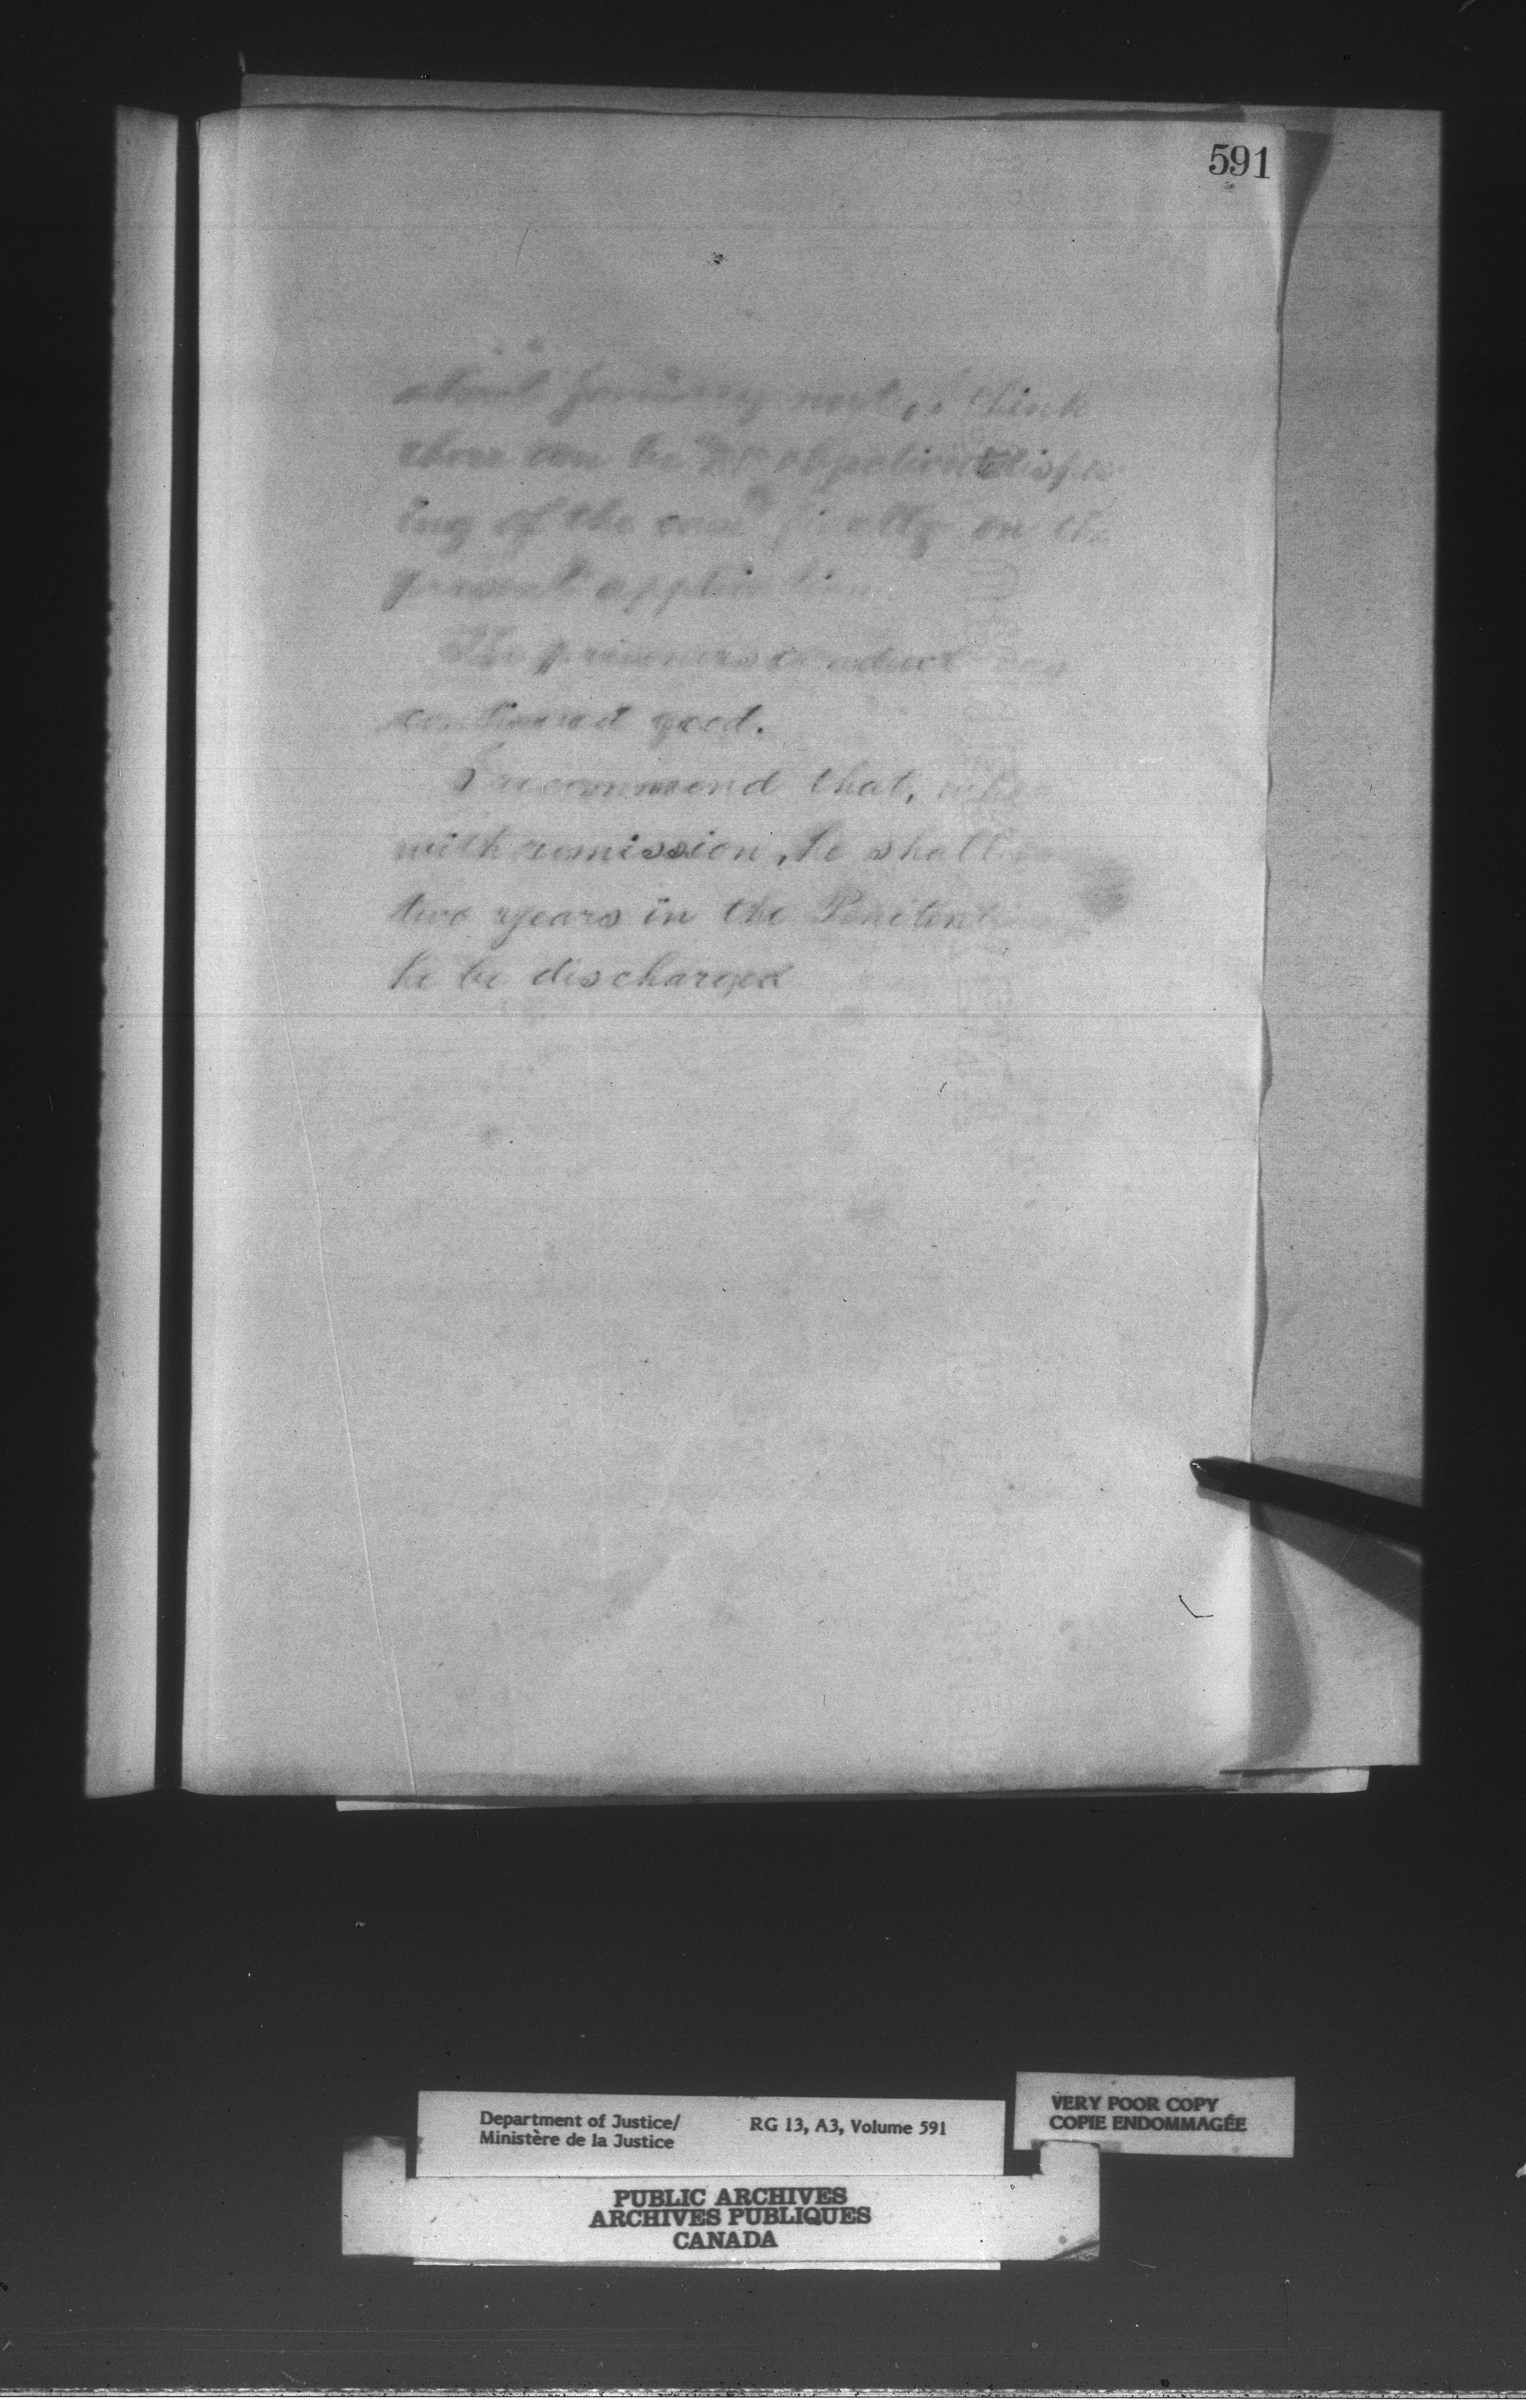 591
about January next, I think
there can be no objection to dispos
ing of the case finally on the
present application
The prisoners conduct has
continued good.
I recommend that, when
with remission, he shall
two years in the Peniten
he be discharged
Department of Justice/
Ministère de la Justice
RG 13, A3, Volume 591
VERY POOR COPY
COPIE ENDOMMAGÉE
PUBLIC ARCHIVES
ARCHIVES PUBLIQUES
CANADA